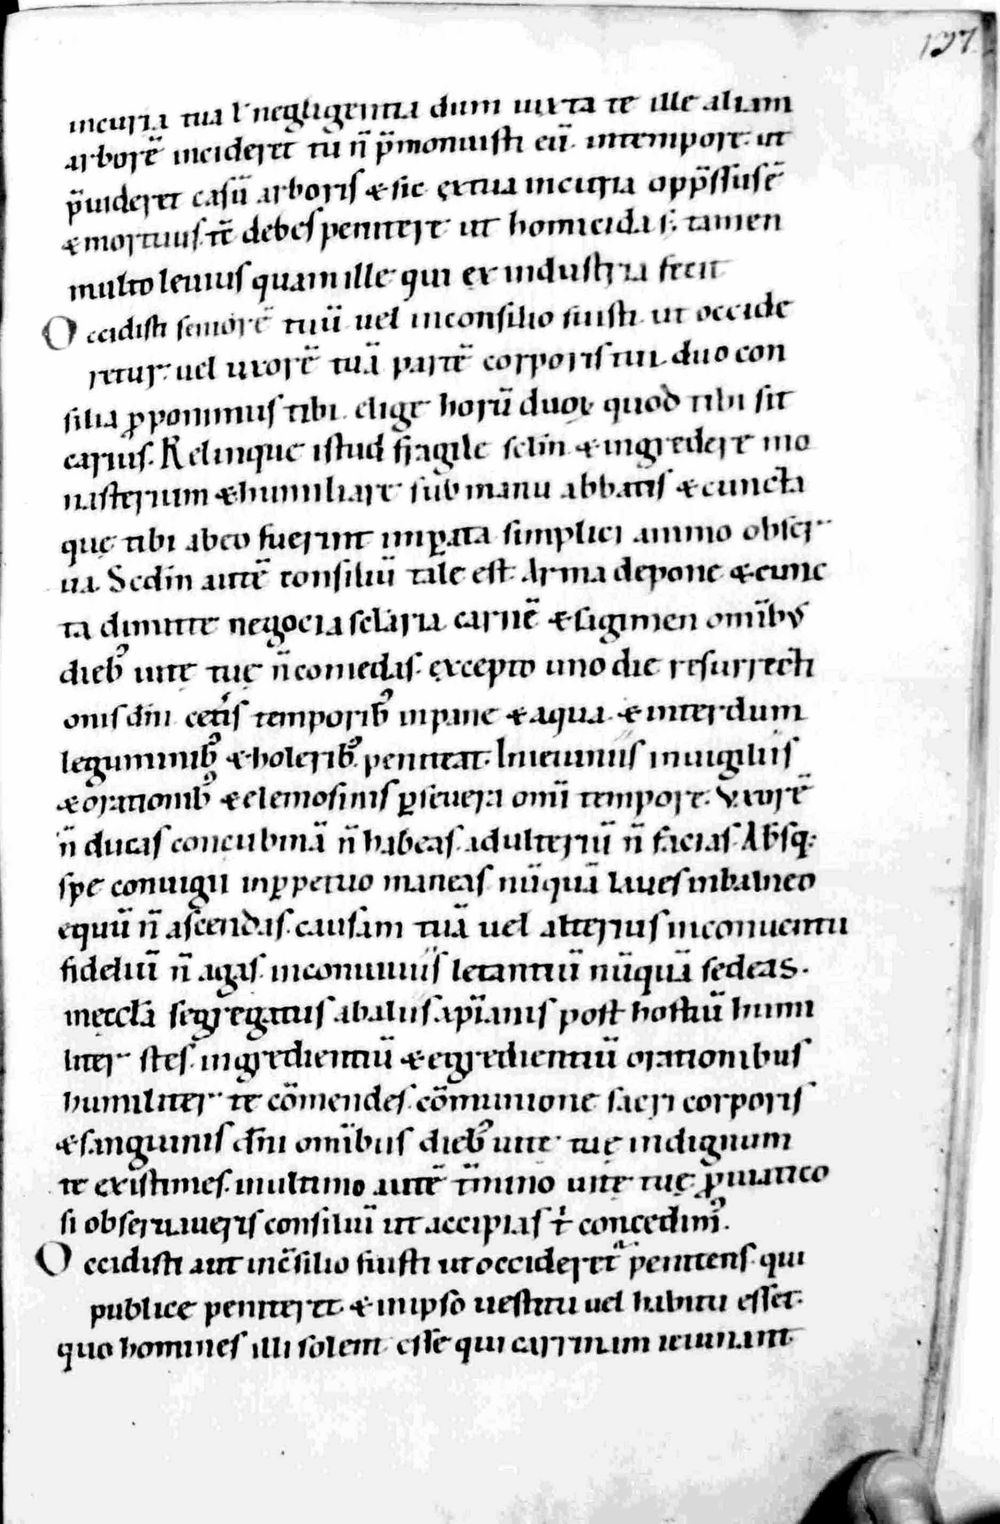 197
incuria tua ł negligentia dum iuxta te ille aliam
arborē incideret tu n̄ p̄monuisti eū. in tempore. ut
p̄uideret casū arboris & sic ex tua incuria opp̄ssus ē
& mortuus. tē debes penitere ut homicida s; tamen
multo leuius quam ille qui ex industria fecit
Occidisti seniorē tuū uel in consilio fuisti ut occide
retur. uel uxorē tuā partē corporis tui. duo con
silia ꝓponimus tibi elige horū duoꝝ quod tibi sit
carius. Relinque istud fragile sclm̄ & ingredere mo
nasterium & humiliare sub manu abbatis & cuncta
quę tibi ab eo fuerint imꝑata simplici animo obser
ua. Scdm̄ autē consiliū tale est. Arma depone & cunc
ta dimitte negocia sclāria carnē & sagimen om̄ibus
dieb; uitę tuę n̄ comedas. excepto uno die resurrecti
onis dn̄i cet̄is temporib; in pane & aqua & interdum
leguminib; & holerib; peniteat. In ieiuniis in uigiliis
& orationib; & elemosinis ꝑseuera omi tempore. Uxorē
n̄ ducas concubinā n̄ habeas. adulteriū n̄ facias. Absq;
spe coniugii in ꝑpetuo maneas nūquā laues in balneo
equū n̄ ascendas. causam tuā uel alterius in conuentu
fideliū n̄ agas. in conuiuiis letantiū nūquā sedeas.
in ęccła segregatus ab aliis xp̄ianis post hostiū humi
liter stes. ingredientiū & egredientiū orationibus
humiliter te cōmendes. cōmunione sacri corporis
& sanguinis dn̄i om̄ibus dieb; uitę tuę indignum
te existimes. in ultimo autē t̄mino uitę tuę ꝓ uiatico
si obseruaueris consiliū ut accipias t̄ concedim;.
Occidisti aut in c̄silio fuisti ut occideret͛ penitens. qui
publice peniteret & in ipso uestitu uel habitu esset.
quo homines illi solent esse qui carrinam ieiunant